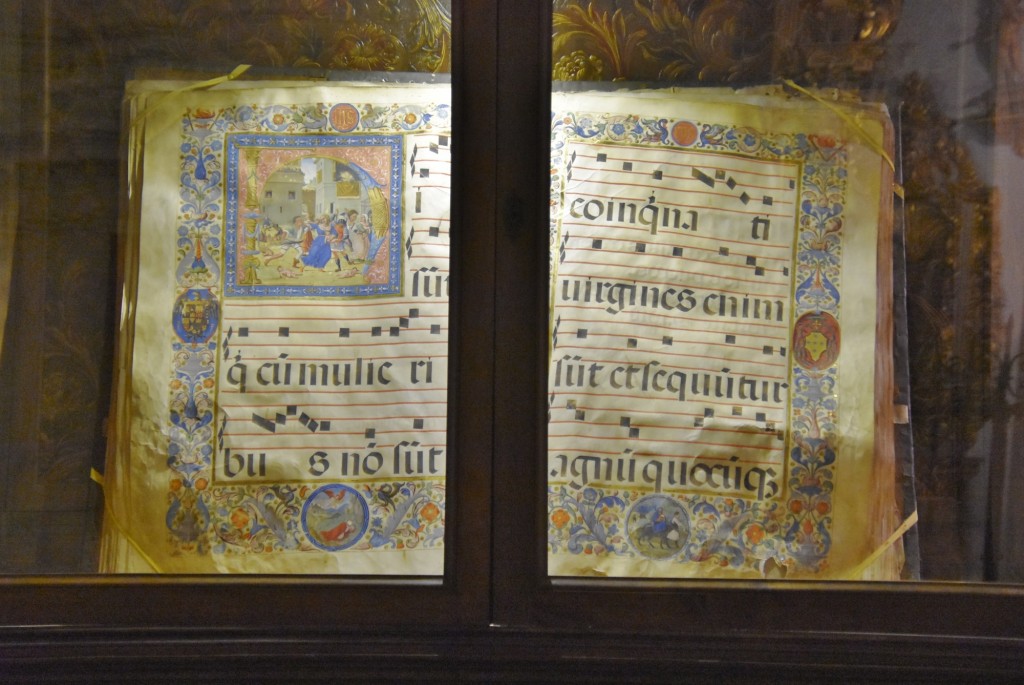 i
sūt
q̄ cū mulie ri
bu s nō sūt
coinq̄na ti
uirgines enim
sūt et sequūtur
agnū quocūq3